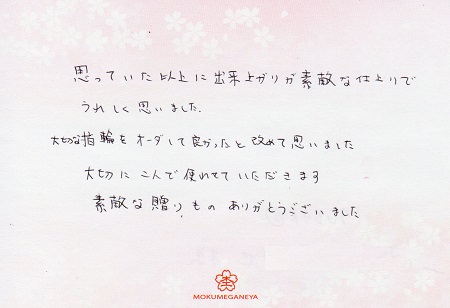 思っていた以上に出来上がりが素敵な仕上りで
うれしく思いました.
大切な指輪をオーダして良かったと改めて思いました
大切に二人で使れせていただきます
素敵な贈りもの ありがとうございました
MOKUMEGANEYA